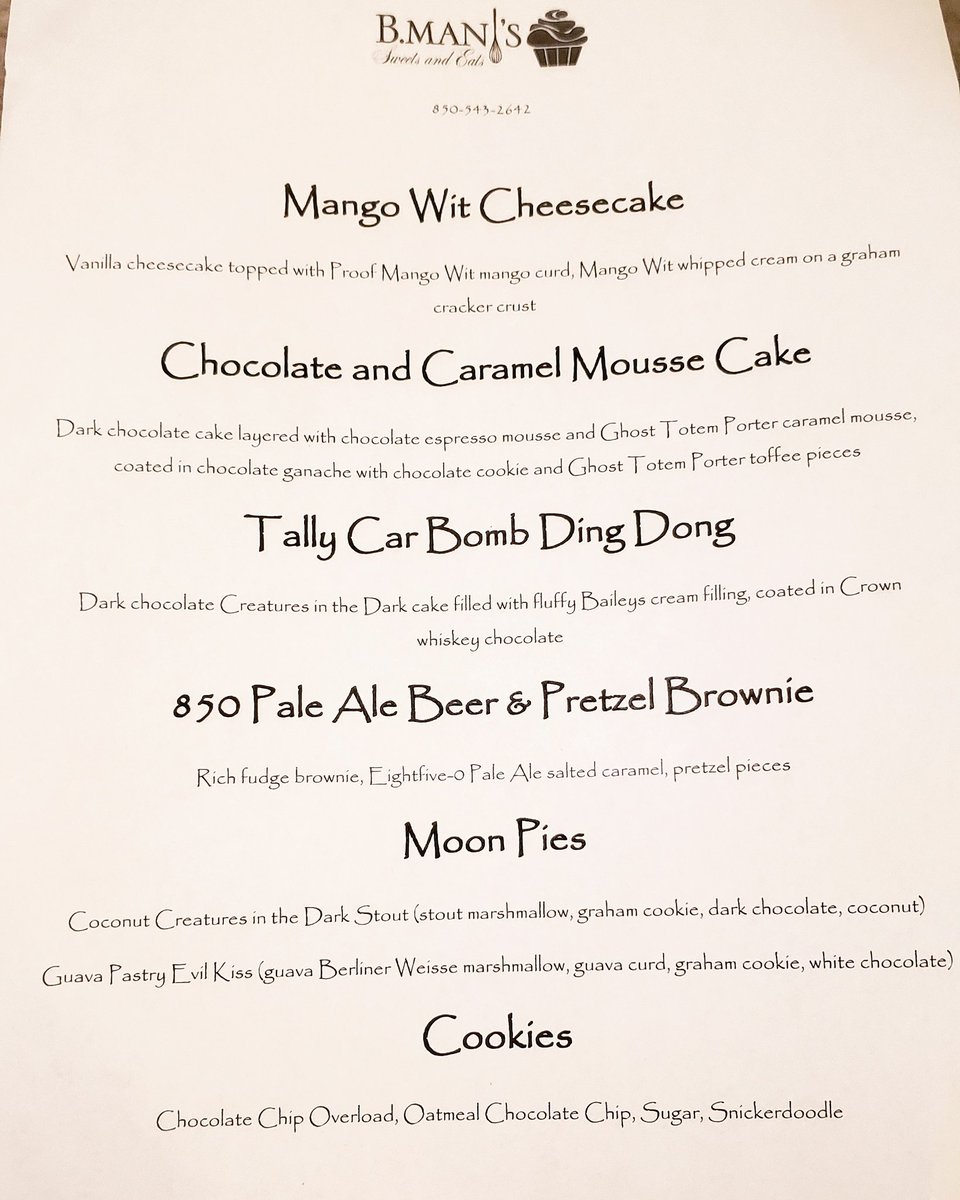 B.MANI'S
Sweets and Eats
850-543-2642
Mango Wit Cheesecake
Vanilla cheesecake topped with Proof Mango Wit mango curd, Mango Wit whipped cream on a graham
cracker crust
Chocolate and Caramel Mousse Cake
Dark chocolate cake layered with chocolate espresso mousse and Ghost Totem Porter caramel mousse,
coated in chocolate ganache with chocolate cookie and Ghost Totem Porter toffee pieces
Tally Car Bomb Ding Dong
Dark chocolate Creatures in the Dark cake filled with fluffy Baileys cream filling, coated in Crown
whiskey chocolate
850 Pale Ale Beer & Pretzel Brownie
Rich fudge brownie, Eightfive-0 Pale Ale salted caramel, pretzel pieces
Moon Pies
Coconut Creatures in the Dark Stout (stout marshmallow, graham cookie, dark chocolate, coconut)
Guava Pastry Evil Kiss (guava Berliner Weisse marshmallow, guava curd, graham cookie, white chocolate)
Cookies
Chocolate Chip Overload, Oatmeal Chocolate Chip, Sugar, Snickerdoodle